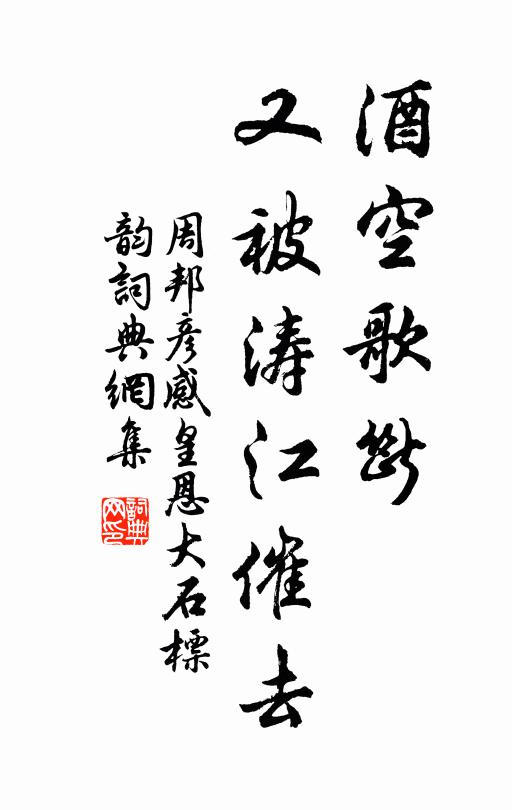 酒空歌斷
又被涛江催去
周邦彥感皇恩大石標
韵詞典網集
詞典網印